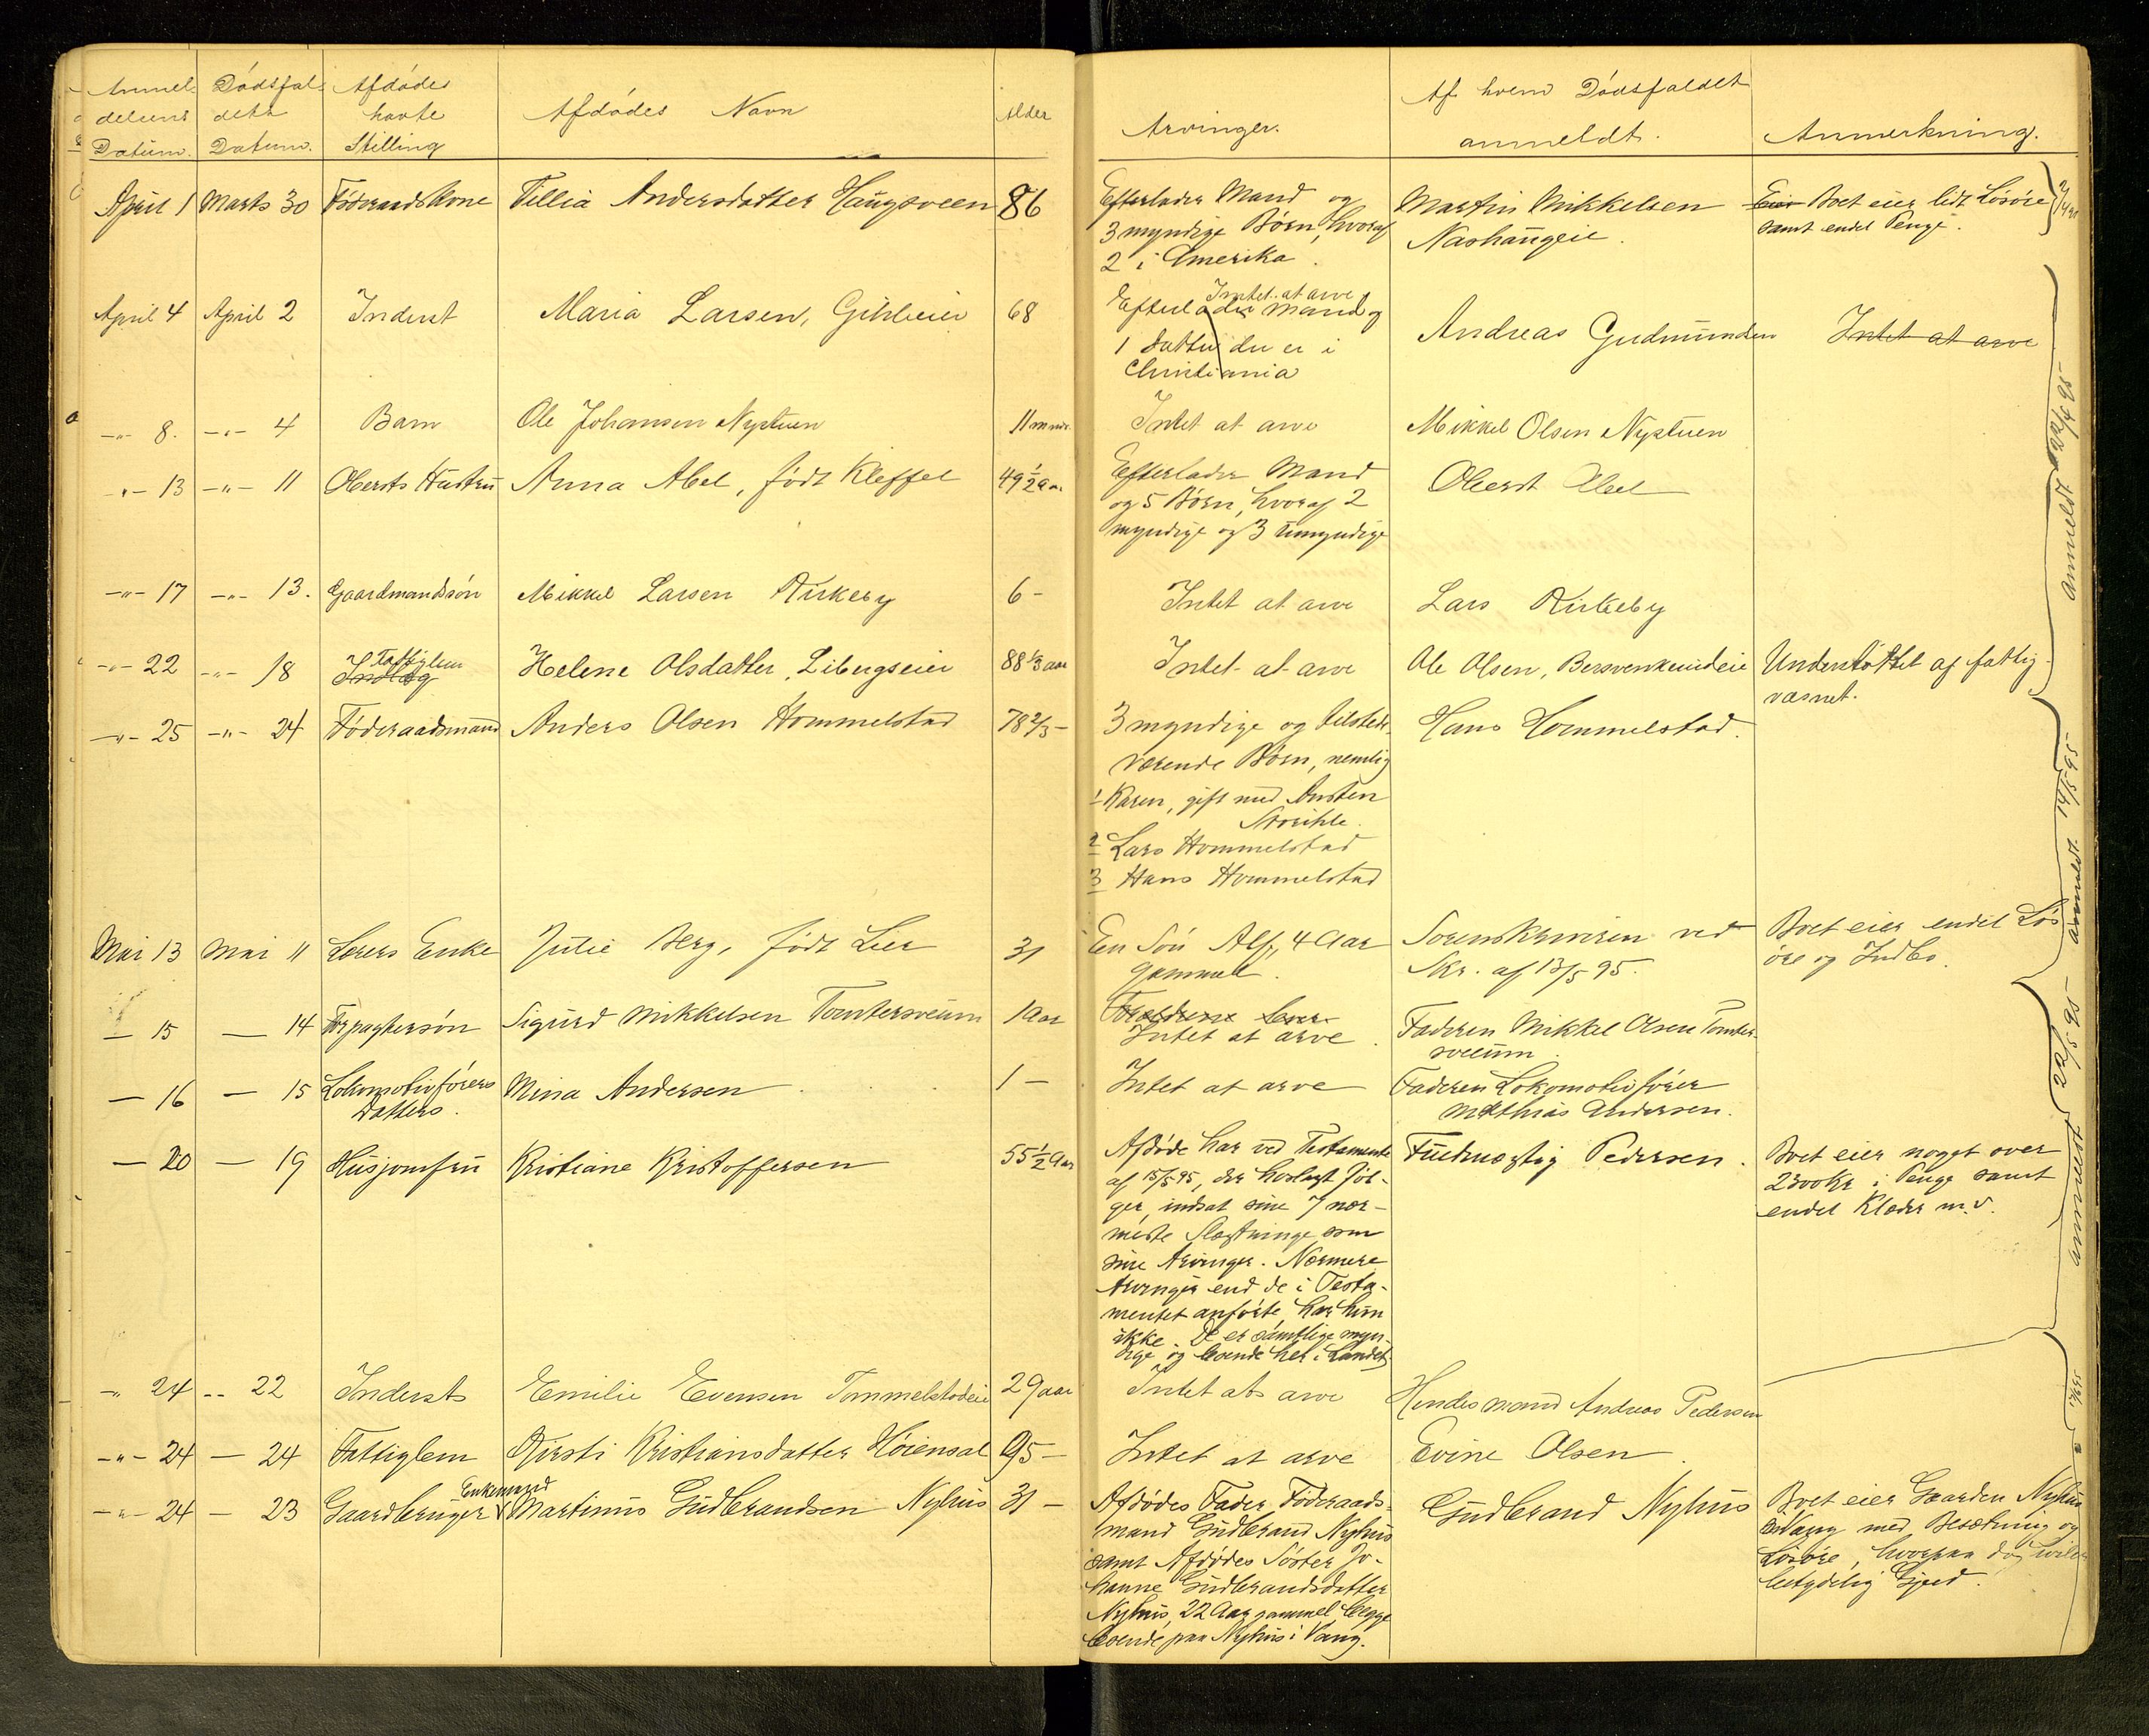 Anmel- Dødsfal- Afdødes
delsens dets havte Afdødes Navn Alder
Datum. Datum. Stilling
Arvinger. Af hvem Dødsfaldet
anmeldt. Anmerkning.
April 1 Marts 30 Føderaadskone Tillia Andersdatter Haugsveen 86 Efterlader Mand og Martin Mikkelsen Eier Boet eier lidt Løsøre
3 myndige Børn, hvoraf Nashaugeie. samt endel Penge.
2 i Amerika.
Intet at arve
April 4 April 2 Inderst Maria Larsen, Gihleeie 68 Efterlader Mand og Andreas Gudmundsen Intet at arve
1 Datter der er i
Christiania
-"- 8. -"- 4 Barn Ole Johansen Nystuen 11 mndr. Intet at arve Mikkel Olsen Nystuen
anmeldt 22/4 95
-"- 13 -"- 11 Obersts Hustru Anna Abel, født Kleffel 49 1/2 aar Efterlader Mand Oberst Abel
og 5 Børn, hvoraf 2
myndige og 3 umyndige
-"- 17 -"- 13. Gaardmandssøn Mikkel Larsen Kirkeby 6 - Intet at arve Lars Kirkeby
Fattiglem
-"- 22 -"- 18 Indlæg Helene Olsdatter, Libergseie 88 1/3 aar Intet at arve Ole Olsen, Bersvenkeindeie Understøttet af fattig-
væsnet.
-"- 25 -"- 24 Føderaadsmand Anders Olsen Hommelstad 78 2/3 - 3 myndige og tilstede- Hans Hommelstad.
værende Børn, nemlig
1 Karen, gift med Austen
Storihle.
2 Lars Hommelstad
3 Hans Hommelstad
anmeldt 14/5 95
Mai 13 Mai 11 Lærers Enke Julie Berg, født Lier 31 En Søn Alf, 4 Aar Sorenskriveren ved Boet eier endel Løs
gammel. Skr. af 13/5 95. øre og Indbo.
- 15 - 14 Forpagtersøn Sigurd Mikkelsen Tomtersveum 1 aar Forældrene lever Faderen Mikkel Olsen Tomter-
Intet at arve. sveum.
- 16 - 15 Lokomotivførers Mina Andersen 1 - Intet at arve Faderen Lokomotivfører
Datters. Mathias Andersen.
anmeldt 22/5 95
- 20 - 19 Husjomfru Kristiane Kristoffersen 55 1/2 Aar Afdøde har ved Testamente Fuldmægtig Pedersen. Boet eier noget over
af 15/5 95, der hoslagt føl- 2300 Kr i Penge samt
ger, indsat sine 7 nær- endel Klæder m.v.
meste Slægtninge som
sine Arvinger. Nærmere
Arvinger end de i Testa-
mentet anførte har hun
ikke. De er samtlige myn-
dige og boende her i Landet.
-"- 24 -"- 22 Inderst Emilie Evensen Tommelstadeie 29 aar Intet at arve Hendes mand Andreas Pedersen
-"- 24 - 24 Fattiglem Kjersti Kristiansdatter Høiensal 95 - Intet at arve Evine Olsen.
Enkemand
-"- 24 - 23 Gaardbruger Martinus Gudbrandsen Nyhus 31 - Afdødes Fader Føderaads- Gudbrand Nyhus Boet eier Gaarden Nyhus
mand Gudbrand Nyhus i Vang med Besætning og
samt Afdødes Søster Jo- Løsøre, hvorpaa dog hviler
hanne Gudbrandsdatter betydelig Gjæld.
Nyhus, 22 Aar gammel begge
boende paa Nyhus i Vang.